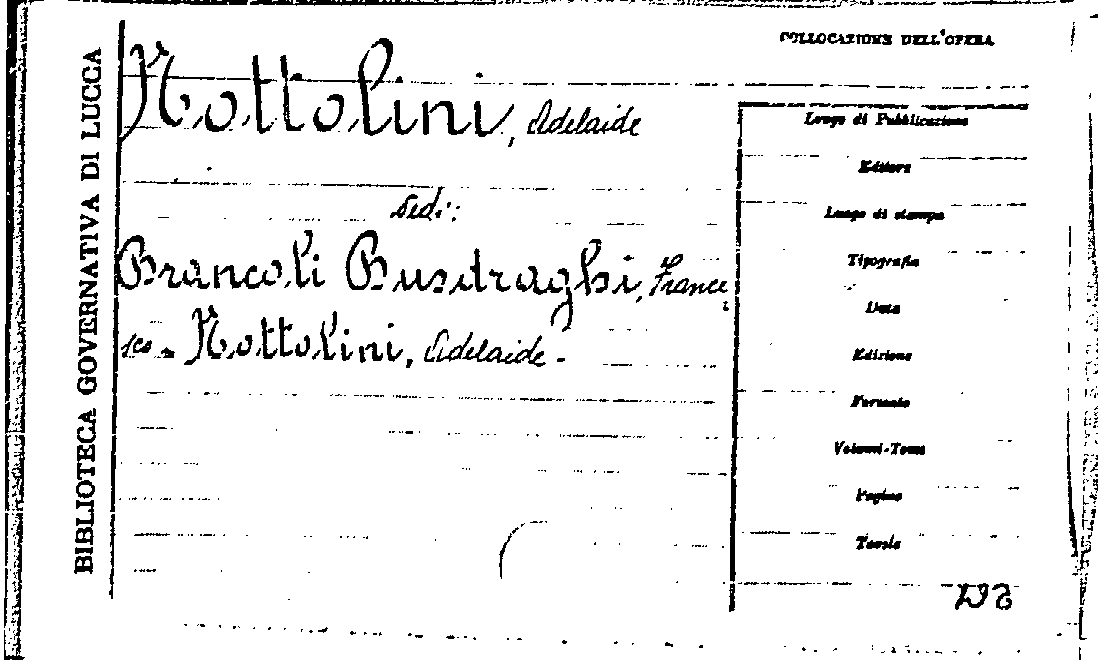 BIBLIOTECA GOVERNATIVA DI LUCCA
COLLOCAZIONE DELL'OPERA
Nottolini, Adelaide
Vedi:
Brancoli Busdraghi, France
sco - Nottolini, Adelaide -
Luogo di Pubblicazione
Editore
Luogo di stampa
Tipografia
Data
Edizione
Formato
Volumi-Tomi
Pagine
Tavole